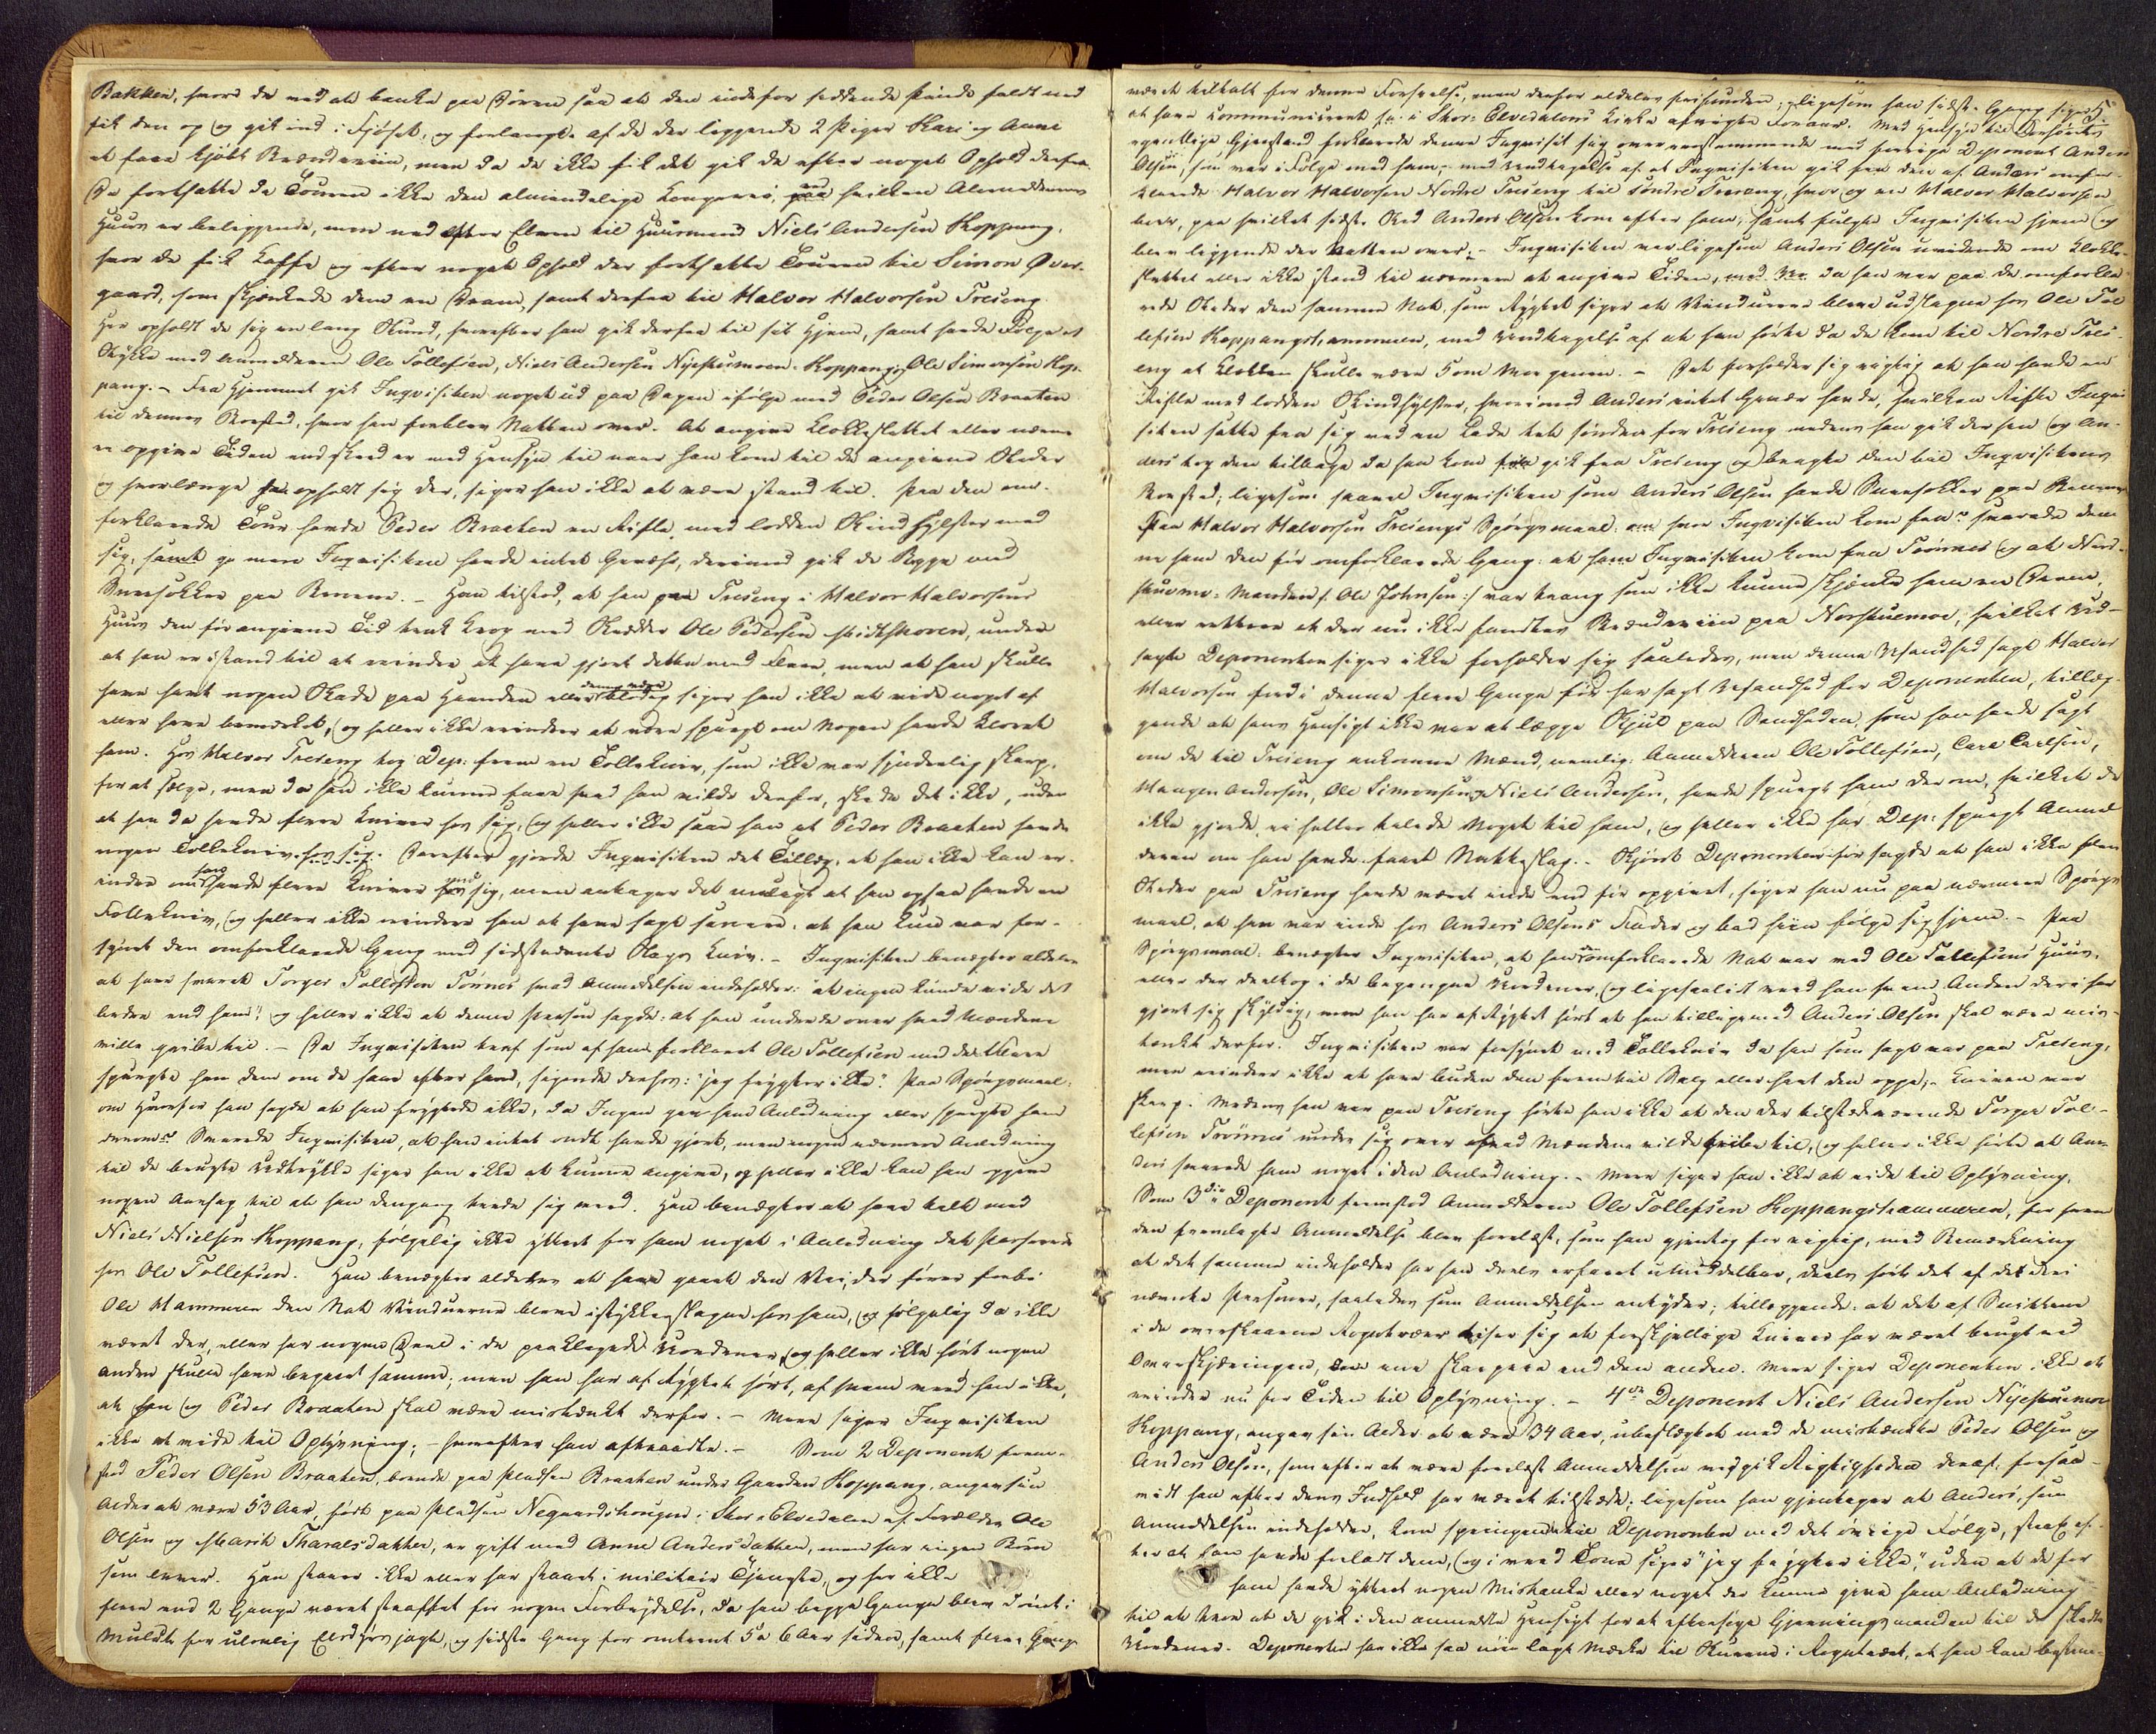 Bakken, hvor de ved at banke paa Døren saa at den indefor siddende Pinde faldt ned
fik den op og gik ind i Fjøset, og forlangte af de der liggende 2 Piger Kari og Anne
at faae kjøbt Brændeviin, men da de ikke fik det gik de efter noget Ophold derfra.
Da fortsatte de Touren ikke den almindelige Kongevei, ved hvilken Anmelderens
Huus er beliggende, men ned efter Elven til Huusmand Niels Andersen Koppang,
hvor de fik Kaffe og efter noget Ophold der fortsatte Touren til Simon Øver-
gaard, som skjænkede dem en Dram, samt derfra til Halvor Halvorsen Treseng.
Her opholdt de sig en lang Stund, hvorefter han gik derfra til sit Hjem, samt havde Følge et
Stykke med Anmelderen Ole Tollefsen, Niels Andersen Nyestumoen Koppang og Ole Simonsen Kop-
pang. – Fra Hjemmet gik Inqvisiten noget ud paa Dagen ifølge med Peder Olsen Braaten
til dennes Bosted, hvor han forblev Natten over. At angive Klokkeslettet eller nærme-
re opgive Tiden end skeed er med Hensyn til naar han kom til de angivne Steder
og hvorlænge han opholdt sig der, siger han ikke at være istand til. Paa den om-
forklarede Tour havde Peder Braaten en Rifle, med lodden Skind hylster med
sig, samt men Inqvisiten havde intet Gevær, derimod gik de Begge med
Snesokker paa Benene. – Han tilstod, at han paa Treseng i Halvor Halvorsens
Huus den før angivne Tid trak Krog med Skrædder Ole Pedersen Midtskoven, uden
at han er istand til at erindre at have gjort dette med Flere, men at han skulle
have havt nogen Skade paa Haanden eller denne været blodig siger han ikke at vide noget af
eller have bemærket, og heller ikke erindrer at være spurgt om Nogen havde kloret
ham. Hos Halvor Treseng tog Dep: frem en Tollekniv, som ikke var synderlig skarp,
for at sælge, men da han ikke kunne faae hvad han vilde derfor, skede det ikke, uden
at han da havde flere Knive hos sig, og heller ikke saae han at Peder Braaten havde
nogen Tollekniv hos sig. Derefter gjorde Inqvisiten det Tillæg, at han ikke kan er-
indre om han havde flere Knive hos sig, men antager det muligt at han ogsaa havde en
Follekniv, og heller ikke erindrer han at have sagt senere, at han kun var for-
synet den omforklarede Gang med sidstnævnte Slags Kniv. – Inqvisiten benægter aldeles
at have svaret Torger Tollefsen Tønnes hvad Anmeldelsen indeholder: "at ingen kunde vide det
bedre end ham" og heller ikke at denne Person sagde: at han undrede over hvad Mændene
ville gribe til. – Da Inqvisiten traf som af ham forklaret Ole Tollefsen med de Flere
spurgte han dem om de saae efter ham, sigende derhos: "jeg frygter ikke". Paa Spørgsmaal:
om Hvorfor han sagde at han frygtede ikke, da Ingen gav ham Anledning eller spurgte ham
derom? Svarede Inqvisiten, at han intet ondt havde gjort, men nogen nærmere Anledning
til de brugte Udtrykke siger han ikke at kunne angive, og heller ikke kan han opgive
nogen Aarsag til at han dengang vendte sig med. Han benægter at have talt med
Niels Nielsen Koppang, følgelig ikke yttret for ham noget i Anledning det Passerede
hos Ole Tollefsen. Han benægter aldeles at have gaaet den Vei, der fører forbi
Ole Hammeren den Nat Vinduerne bleve istykkerslagne hos ham, og følgelig da ikke
været der, eller har nogen Deel i de paaklagede Uordener, og heller ikke hørt nogen
anden skulle have begaaet samme; men han har af Rygtet hørt, af hvem veed han ikke,
at han og Peder Braaten skal være mistænkt derfor. – Mere siger Inqvisiten
ikke at vide til Oplysning; – hvorefter han aftraadte. – Som 2 Deponent frem-
stod Peder Olsen Braaten, boende paa Pladsen Braaten under Gaarden Koppang, angav sin
Alder at være 53 Aar, født paa Pladsen Negaardshougen i Stor-Elvedalen af Forældre Ole
Olsen og Marit Tharaldsdatter, er gift med Anne Andersdatter, men har ingen Børn
som lever. Han staaer ikke eller har staaet i militair Tjeneste, og har ikke
flere end 2 Gange været straffet for nogen Forbrydelse, da han begge Gange blev dømt i
Mulkt for ulovlig Elsdyrsjagt, og sidste Gang for omtrent 5 a 6 Aar siden, samt flere Gange
5
været tiltalt for denne Forseelse, men derfor aldeles frifunden; ligesom han sidste Gang siger
at have kommuniceret sa: i Stor-Elvedalens Kirke afvigte Foraar. Med Hensyn til Forhørets
egentlige Gjenstand forklarede denne Inqvisit sig overeenstemmende med forrige Deponent Anders
Olsen, som var i Følge med ham, med Undtagelse af at Inqvisiten gik fra den af Anders omfor-
klarede Halvor Halvorsen Nordre Treseng til søndre Treseng, hvor og en Halvor Halvorsen
boer, paa hvilket sidste Sted Anders Olsen kom efter ham, samt fulgte Inqvisiten hjem og
blev liggende der Natten over. – Inqvisiten var ligesom Anders Olsen uvidende om Klokke-
slettet eller ikke istand til nærmere at angive Tiden, da han var paa de omforkla-
rede Steder den samme Nat, som Rygtet siger at Vinduerne bleve udslagne hos Ole Tol-
lefsen Koppangshammeren, med Undtagelse af at han hørte da de kom til Nordre Tres-
eng at Klokken skulle være 5 om Morgenen. – Det forholder sig rigtig at han havde en
Rifle med lodden Skindhylster, hvorimod Anders intet Gevær havde, hvilken Rifle Inqvi-
siten satte fra sig ved en Lade tæt sønden for Treseng medens han gik der hen og An-
ders tog den tilbage da han kom gik fra Treseng og bragte den til Inqvisitens
Bosted; ligesom saavel Inqvisiten som Anders Olsen havde Snesokker paa Benene.
Paa Halvor Halvorsen Tresengs Spørgsmaal: om hvor Inqvisiten kom fra? svarede den-
ne ham den før omforklarede Gang: at han Inqvisiten kom fra Trønnes og at Nord-
stuemo-Manden /: Ole Johnsen:/ var trang som ikke kunne skjænke ham en Dram,
eller rettere at der nu ikke fandtes Brændeviin paa Norstuemoe, hvilket Ud-
sagte Deponenten siger ikke forholder sig saaledes, men denne Usandhed sagt Halvor
Halvorsen fordi denne flere Gange før har sagt Usandhed for Deponenten, tillæg-
gende at hans Hensigt ikke var at lægge Skjul paa Sandheden, som han havde sagt
om de til Treseng ankomne Mænd, nemlig: Anmelderen Ole Tollefsen, Carl Carlsen,
Haagen Andersen, Ole Simonsen og Niels Andersen, havde spurgt ham derom, hvilket de
ikke gjorde, ei heller talede Noget til ham, og heller ikke har Dep: spurgt Anmel-
deren om han havde faaet Nakkeslag. – Skjønt Deponenten før sagde at han ikke flere
Steder paa Treseng havde været inde end før opgivet, siger han nu paa nærmere Spørgs-
maal, at han var inde hos Anders Olsens Fader og bad hiin følge sig hjem. – Paa
Spørgsmaal benægter Inqvisiten, at han den omforklarede Nat var ved Ole Tollefsens Huus,
eller der deeltog i de begangne Uordener, og ligesaalidt veed han hvem Anden deri har
gjort sig skyldig, men han har af Rygtet hørt at han tilligemed Anders Olsen skal være mis-
tænkt derfor. Inqvisiten var forsynet med Tollekniv da han som sagt var paa Treseng,
men erindrer ikke at have buden den frem til Salg eller havt den oppe; – Kniven var
skarp. Medens han var paa Treseng hørte han ikke at den der tilstedeværende Torger Tol-
lefsen Trønnes undre sig over hvad Mændene vilde gribe til, og heller ikke hørte at An-
ders svarede ham noget i den Anledning. – Mere siger han ikke at vide til Oplysning.
Som 3die Deponent fremstod Anmelderen Ole Tollefsen Koppangshammeren, for hvem
den fremlagte Anmeldelse blev forelæst, som han gjentog for rigtig, med Bemærkning
at det samme indeholder har han deels erfaret umiddelbar, deels hørt det af de deri
nævnte Personer, saaledes som Anmeldelsen antyder; tillæggende: at det af Snittene
i de overskaarne viser sig at forskjellige Knive har været brugt ved
Overskjæringen, den ene skarpere end den anden. Mere siger Deponenten ikke at
erindre nu for Tiden til Oplysning. – 4de Deponent Niels Andersen Nyestuemoe
Koppang, angav sin Alder at være 34 Aar, ubeslægtet med de mistænkte Peder Olsen og
Anders Olsen, som efter at være forelæst Anmeldelsen vedgik Rigtigheden deraf, forsaa-
vidt han efter dens Indhold har været tilstede; ligesom han gjentager at Anders, som
Anmeldelsen indeholder, kom springende til Deponenten med det øvrige Følge, strax ef-
ter at han havde forladt dem, og i vred Tone siger "jeg frygter ikke," uden at de for
ham havde yttret nogen Mistanke eller noget der kunne give ham Anledning
til at troe at de gik i den anmeldte Hensigt for at eftersøge Gjerningsmanden til de skedte
Uordener. Deponenten har ikke saa nøie lagt Mærke til Skurene i , at han kan bestem-